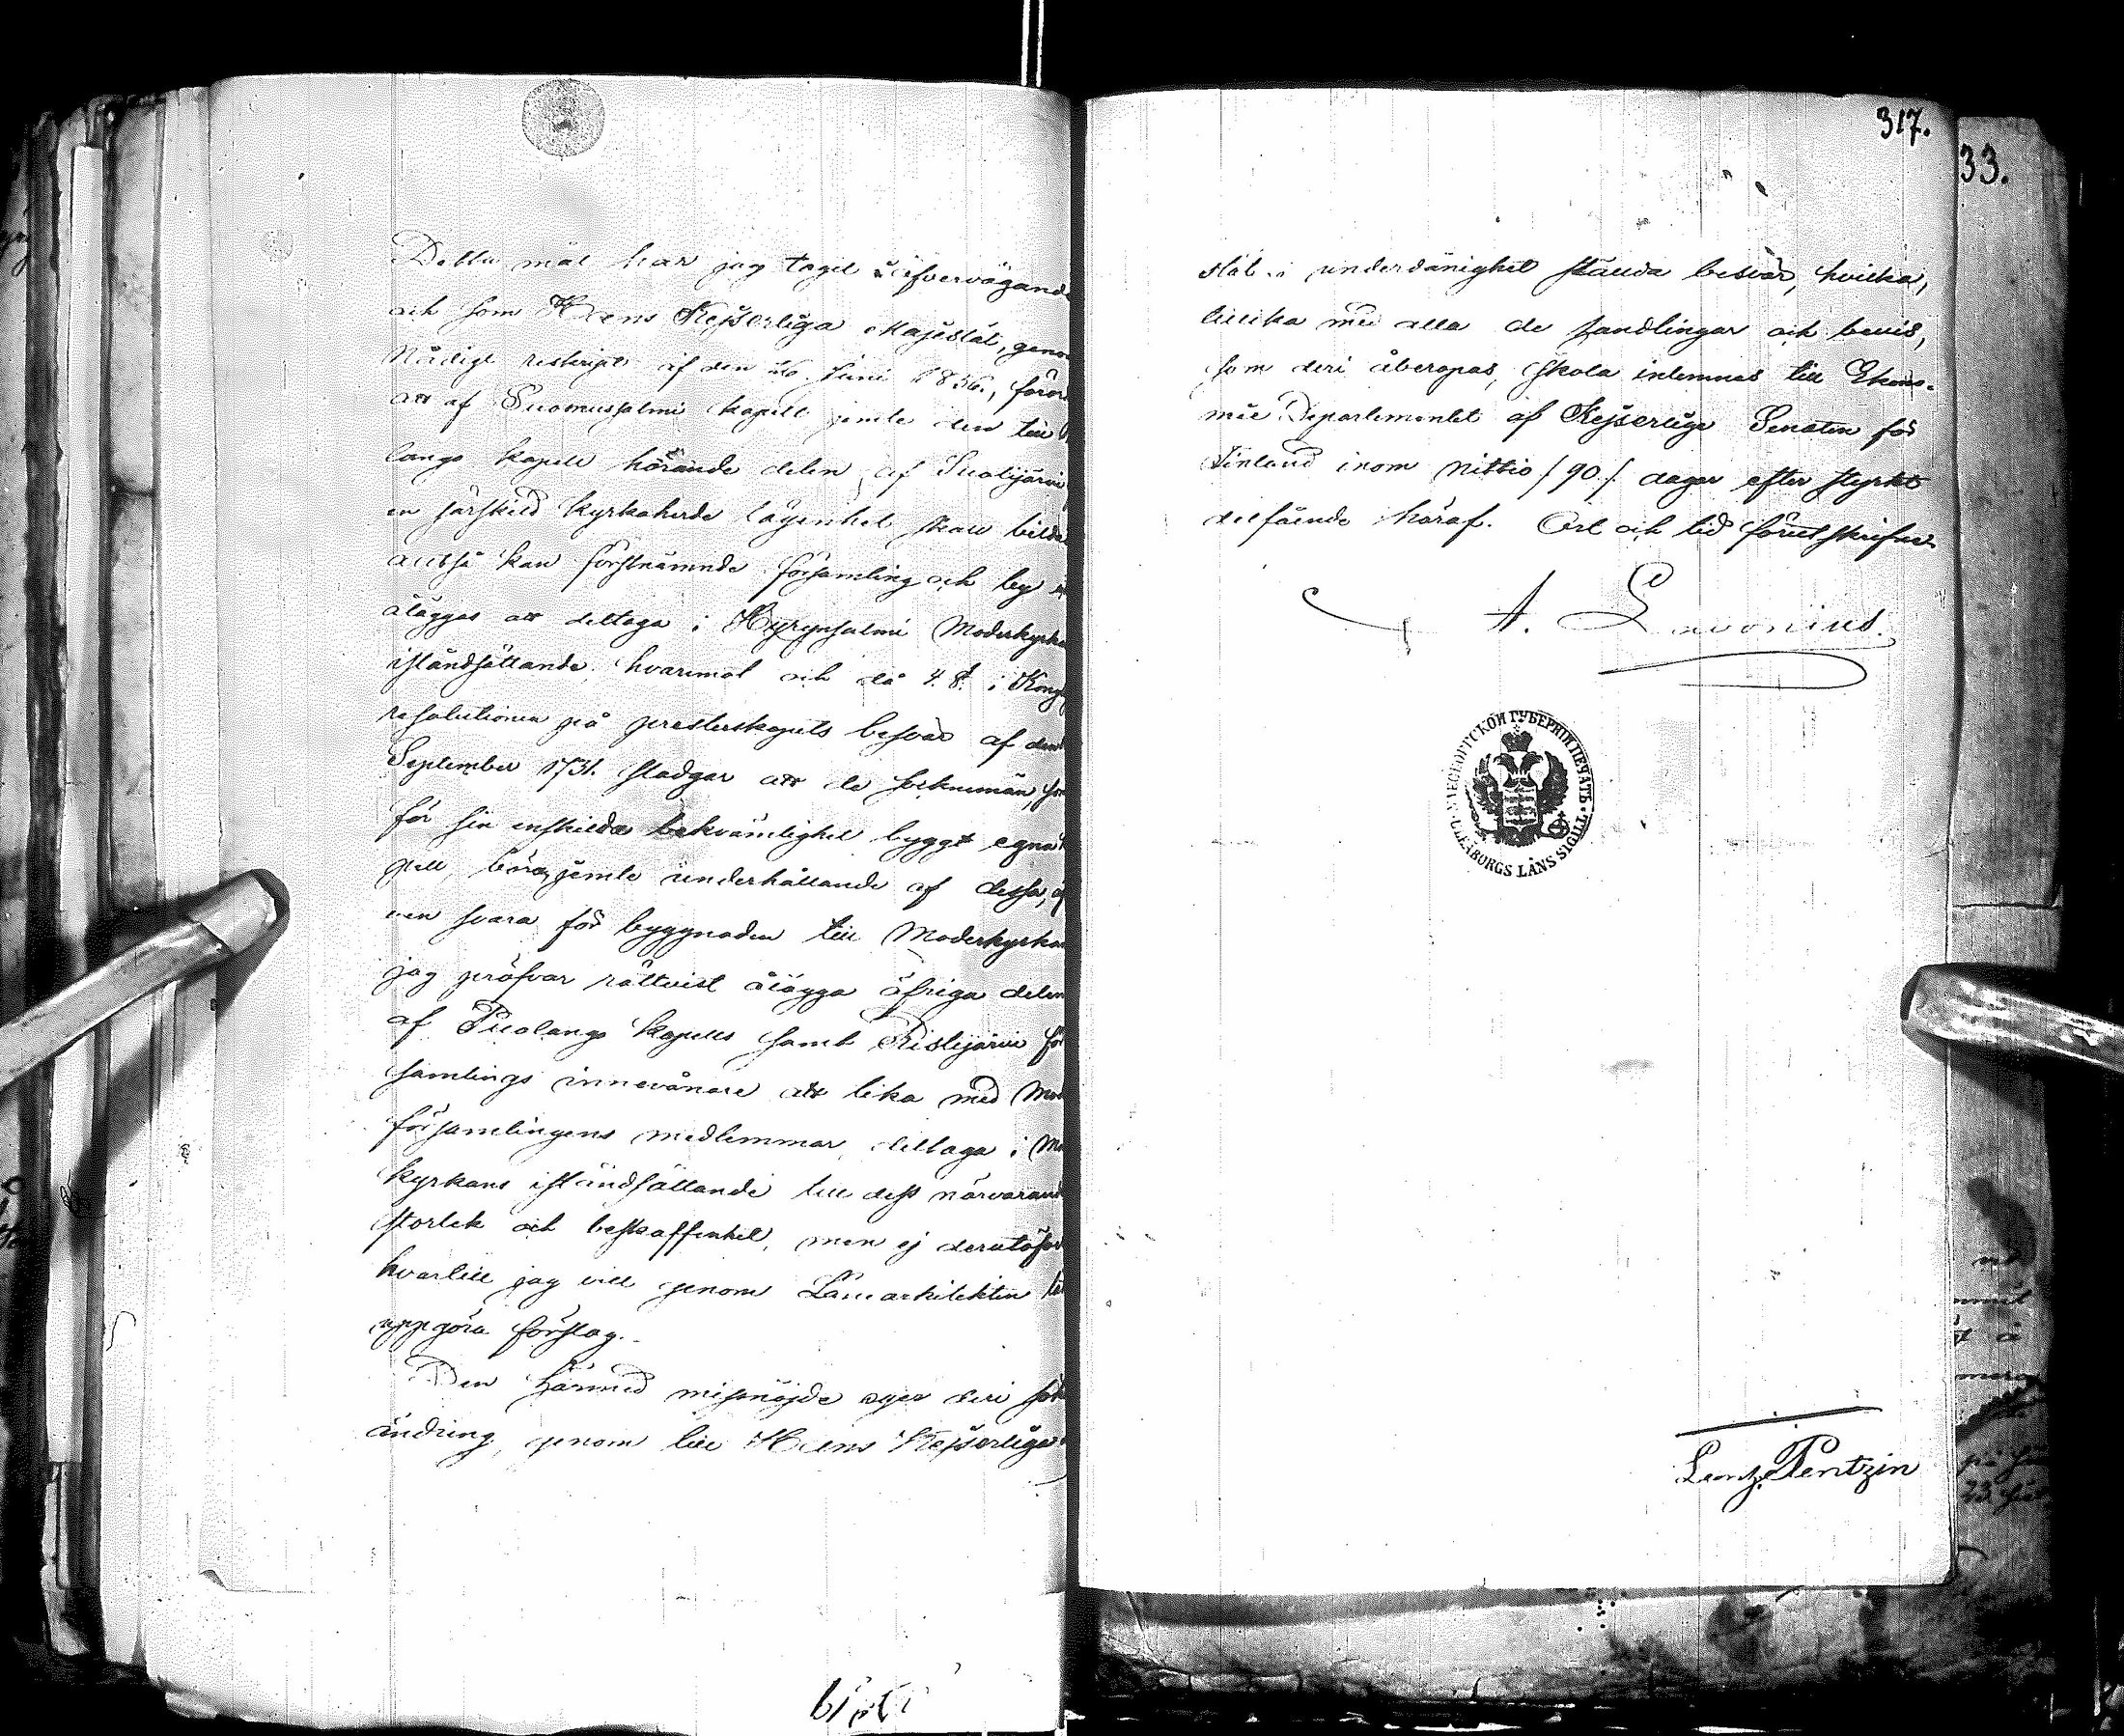 Detta mål har jag tagit i öfvervägande
och som Hans Kejserliga Majestät, genom
Nådigt reskript af den Juni 1856., föror
att af Suomussalmi kapell jemte den till
langs kapell hörande delen af Suolijärvi
en särskild Kyrkoherde lägenhet skall bildas
alltså kan förstnämnde församling och by
åläggas att deltaga i Hyrynsalmi Moderkyrka
iståndsättande, hvaremot och då 4. §. i Kongl
resolutionen på presterskapets besvär af den
September 1731. stadgar att de sockenmän, som
för sin enskilda bekvämlighet byggt egna
pell, böra, jemte underhållande af dessa,
ven svara för byggnaden till Moderkyrkan
jag pröfvar rättvist ålägga öfriga delen
af Puolango kapells samt Ristijärvi för
samlings innevånare att lika med Mod
församlingens medlemmar, deltaga i Mo
kyrkans iståndsättande till dess närvarande
storlek och beskaffenhet, men ej derutöfver
hvartill jag vill genom Länearkitekten
uppgöra förslag.
Den härmed missnöjde eger deri sök
ändring, genom till Hans Kejserliga
317.
33.
stät i underdånighet stälda besvär, hvilka,
tillika med alla de handlingar och bevis,
som deri åberopas, skola inlemnas till Ekono-
mie Departementet af Kejserlige Senaten för
Finland inom nittio /90/ dagar efter styrkt
delfående häraf. Ort och tid förutskrifne.
A. Lavonius.
УЛЕАБОРГСКОЙ ГУБЕРНІИ ПЕЧАТЬ
ULEÅBORGS LÄNS SIGILL
Pentzin